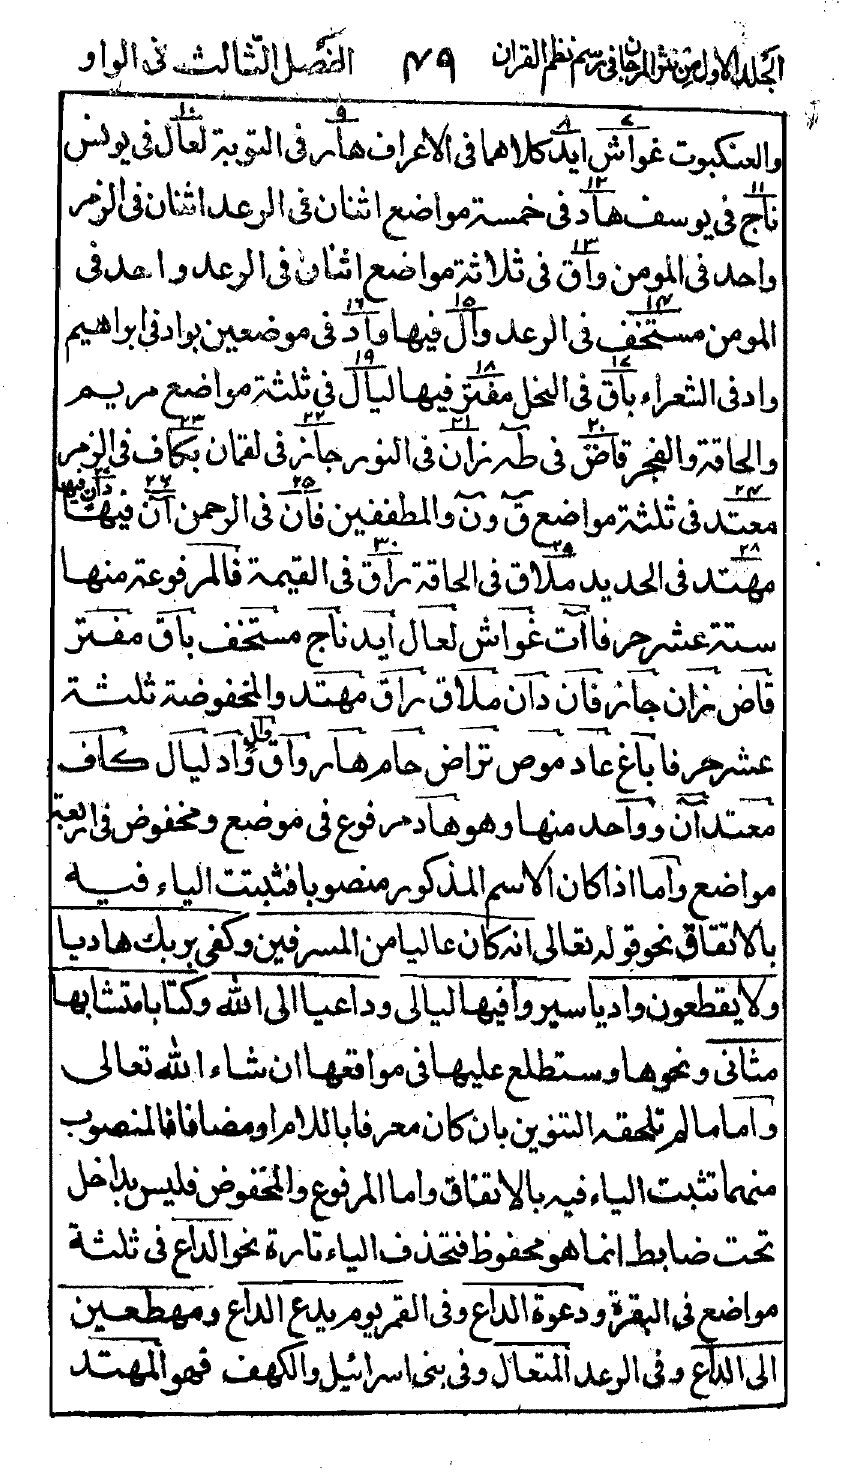 الجلد الاول من نثر المرجان في رسم نظم القران ٧٩ الفصل الثالث في الواو
والعنكبوت غواش ايد كلاهما في الاعراف هار في التوبة لعال في يونس
ناج في يوسف هاد في خمسة مواضع اثنان في الرعد اثنان في الزمر
واحد في المومن واق في ثلاثة مواضع اثنان في الرعد واحد في
المومن مستخف في الرعد وال فيها واد في موضعين بواد في ابراهيم
واد في الشعراء باق في النحل مفتر فيها ليال في ثلثة مواضع مريم
والحاقة والفجر قاض في طه زان في النور جاز في لقمان بكاف في الزمر
معتد في ثلثة مواضع ق ون والمطففين فان في الرحمن آن فيها دان فيها
مهتد في الحديد ملاق في الحاقة راق في القيمة فالمرفوعة منها
ستة عشر حرفا آت غواش لعال ايد ناج مستخف باق مفتر
قاض زان جاز فان دان ملاق راق مهتد والمخفوضة ثلثة
عشر حرفا باغ عاد موص تراض حام هار واق وال واد ليال كاف
معتد آن وواحد منها وهو هاد مرفوع في موضع ومخفوض في اربعة
مواضع واما اذا كان الاسم المذكور منصوبا فثبتت الياء فيه
بالاتفاق نحو قوله تعالى انه كان عاليا من المسرفين وكفى بربك هاديا
ولا يقطعون واديا سيروا فيها ليالى وداعيا الى الله وكتابا متشابها
مثانى ونحوها وستطلع عليها في مواقعها ان شاء الله تعالى
واما ما لم تلحقه التنوين بان كان معرفا باللام او مضافا فالمنصوب
منهما تثبت الياء فيه بالاتفاق واما المرفوع والمخفوض فليس بداخل
تحت ضابط انما هو محفوظ فتحذف الياء تارة نحو الداع في ثلثة
مواضع في البقرة ودعوة الداع وفي القمر يوم يدع الداع ومهطعين
الى الداع وفي الرعد المتعال وفي بني اسرائيل والكهف فهو المهتد